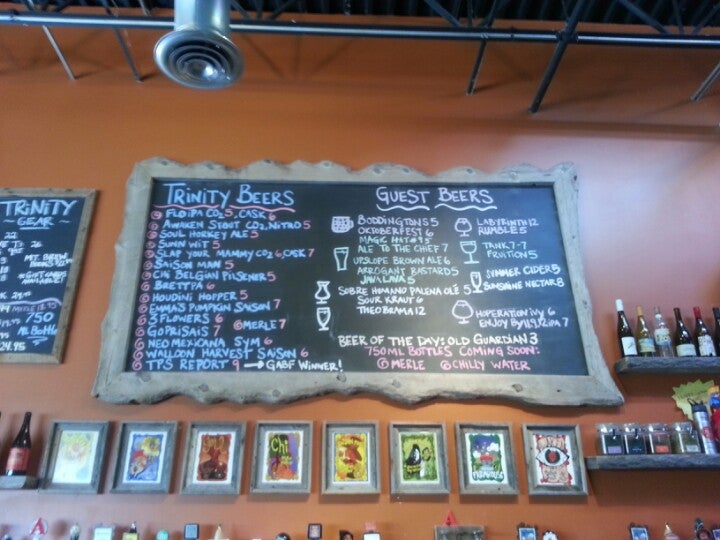 TRINITY
~ GEAR ~
750
All Bottle
TRINITY BEERS
FLO IPA CO2 5, CASK 6
AWAKEN STOUT CO2, NITRO 5
SOUL HORKEY ALE 5
SUNN WIT 5
SLAP YOUR MAMMY CO2 6, CASK 7
SAISON MAN 5
CHI BELGIAN PILSENER 5
BRETTPA 6
HOUDINI HOPPER 5
EMMA'S PUMPKIN SAISON 7
3 FLOWERS 6
MERLE 7
GOPRISAIS 7
NEOMEXICANA SYM 6
WALLOON HARVEST SAISON 6
TPS REPORT 9 → GABF WINNER!
GUEST BEERS
BODDINGTONS 5
OKTOBERFEST 6
MAGIC HAT #9 5
ALE TO THE CHIEF 7
UPSLOPE BROWN ALE 6
ARROGANT BASTARD 5
JAVALAVA 5
SOBRE HUMANO PALENA OLÉ 5
SOUR KRAUT 6
THEOBRAMA 12
LABYRINTH 12
RUMBLE 5
TANK 7 - 7
FRUITION 5
SUMMER CIDER 5
SUNSHINE NECTAR 8
HOPERATION IVY 6
ENJOY BY 11.1.12 IPA 7
BEER OF THE DAY: OLD GUARDIAN 3
750ML BOTTLES COMING SOON:
MERLE CHILLY WATER